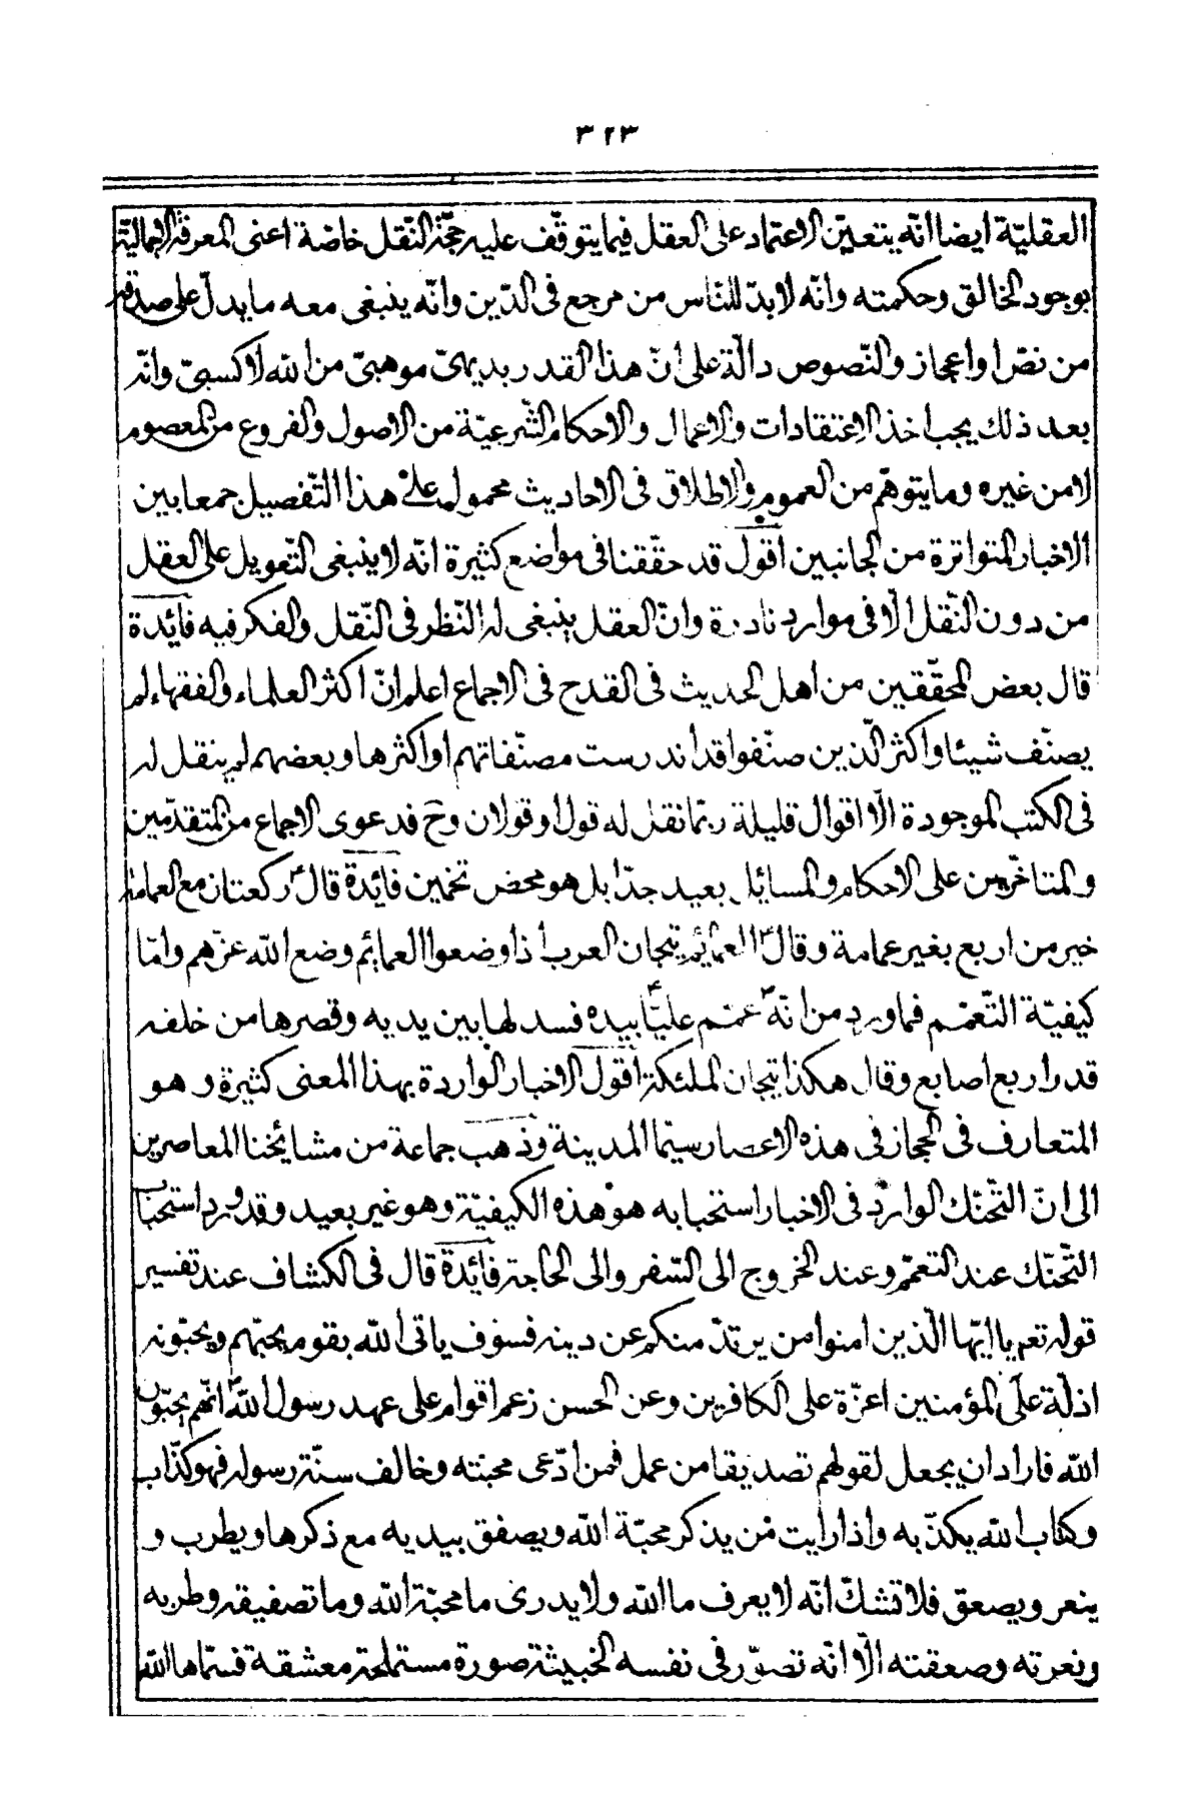 ٣٢٣
العقليّة ايضا انّه يتعيّن الاعتماد على العقل فيما يتوقّف عليه حجّة النّقل خاصّة اعنى المعرفة الاجماليّة
بوجود الخالق وحكمته وانّه لابدّ للنّاس من مرجع فى الدّين وانّه ينبغى معه ما يدلّ على صدقه
من نصّ او اعجاز والنّصوص دالّة على انّ هذا القدر بديهىّ موهبىّ من الله لا كسبىّ وانّه
بعد ذلك يجب اخذ الاعتقادات والاعمال والاحكام الشّرعيّة من الاصول والفروع من المعصوم
لا من غيره وما يتوهّم من العموم والاطلاق فى الاحاديث محمول على هذا التّفصيل جمعا بين
الاخبار المتواترة من الجانبين اقول قد حقّقنا فى مواضع كثيرة انّه لا ينبغى التّعويل على العقل
من دون النّقل الّا فى موارد نادرة وانّ العقل ينبغى له النّظر فى النّقل والفكر فيه فائدة
قال بعض المحقّقين من اهل الحديث فى القدح فى الاجماع اعلم انّ اكثر العلماء والفقهاء لم
يصنّف شيئا واكثر الّذين صنّفوا قد اندرست مصنّفاتهم او اكثرها وبعضهم لم ينقل له
فى الكتب الموجودة الّا اقوال قليلة ربّما نقل له قول او قولان وح فدعوى الاجماع من المتقدّمين
والمتاخّرين على الاحكام والمسائل بعيد جدّا بل هو محض تخمين فائدة قال ص ركعتان مع العمامة
خير من اربع بغير عمامة وقال ص العمائم تيجان العرب اذا وضعوا العمائم وضع الله عزّهم وامّا
كيفيّة التّعمّم فما ورد من انّه ص عمّم عليّا بيده فسدلها بين يديه وقصرها من خلفه
قدر اربع اصابع وقال هكذا تيجان الملئكة اقول الاخبار الواردة بهذا المعنى كثيرة وهو
المتعارف فى الحجاز فى هذه الاعصار سيّما المدينة وذهب جماعة من مشائخنا المعاصرين
الى انّ التّحنّك الوارد فى الاخبار استحبابه هو هذه الكيفيّة وهو غير بعيد وقد ورد استحباب
التّحنّك عند التعمّم وعند الخروج الى السّفر والى الحاجة فائدة قال فى الكشاف عند تفسير
قوله تعم يا ايّها الّذين امنوا من يرتدّ منكم عن دينه فسوف ياتى الله بقوم يحبّهم ويحبّونه
اذلّة على المؤمنين اعزّة على الكافرين وعن الحسن زعم اقوام على عهد رسول الله ص انّهم يحبّون
الله فاراد ان يجعل لقولهم تصديقا من عمل فمن ادّعى محبّته وخالف سنّة رسوله فهو كذّاب
وكتاب الله يكذّبه واذا رايت من يذكر محبّة الله ويصفق بيديه مع ذكرها ويطرب و
ينعر ويصعق فلا تشكّ انّه لا يعرف ما الله ولا يدرى ما محبّة الله وما تصفيقه وطربه
ونعرته وصعقته الّا انّه تصوّر فى نفسه الخبيثة صورة مستملحة معشقة فسمّاها الله